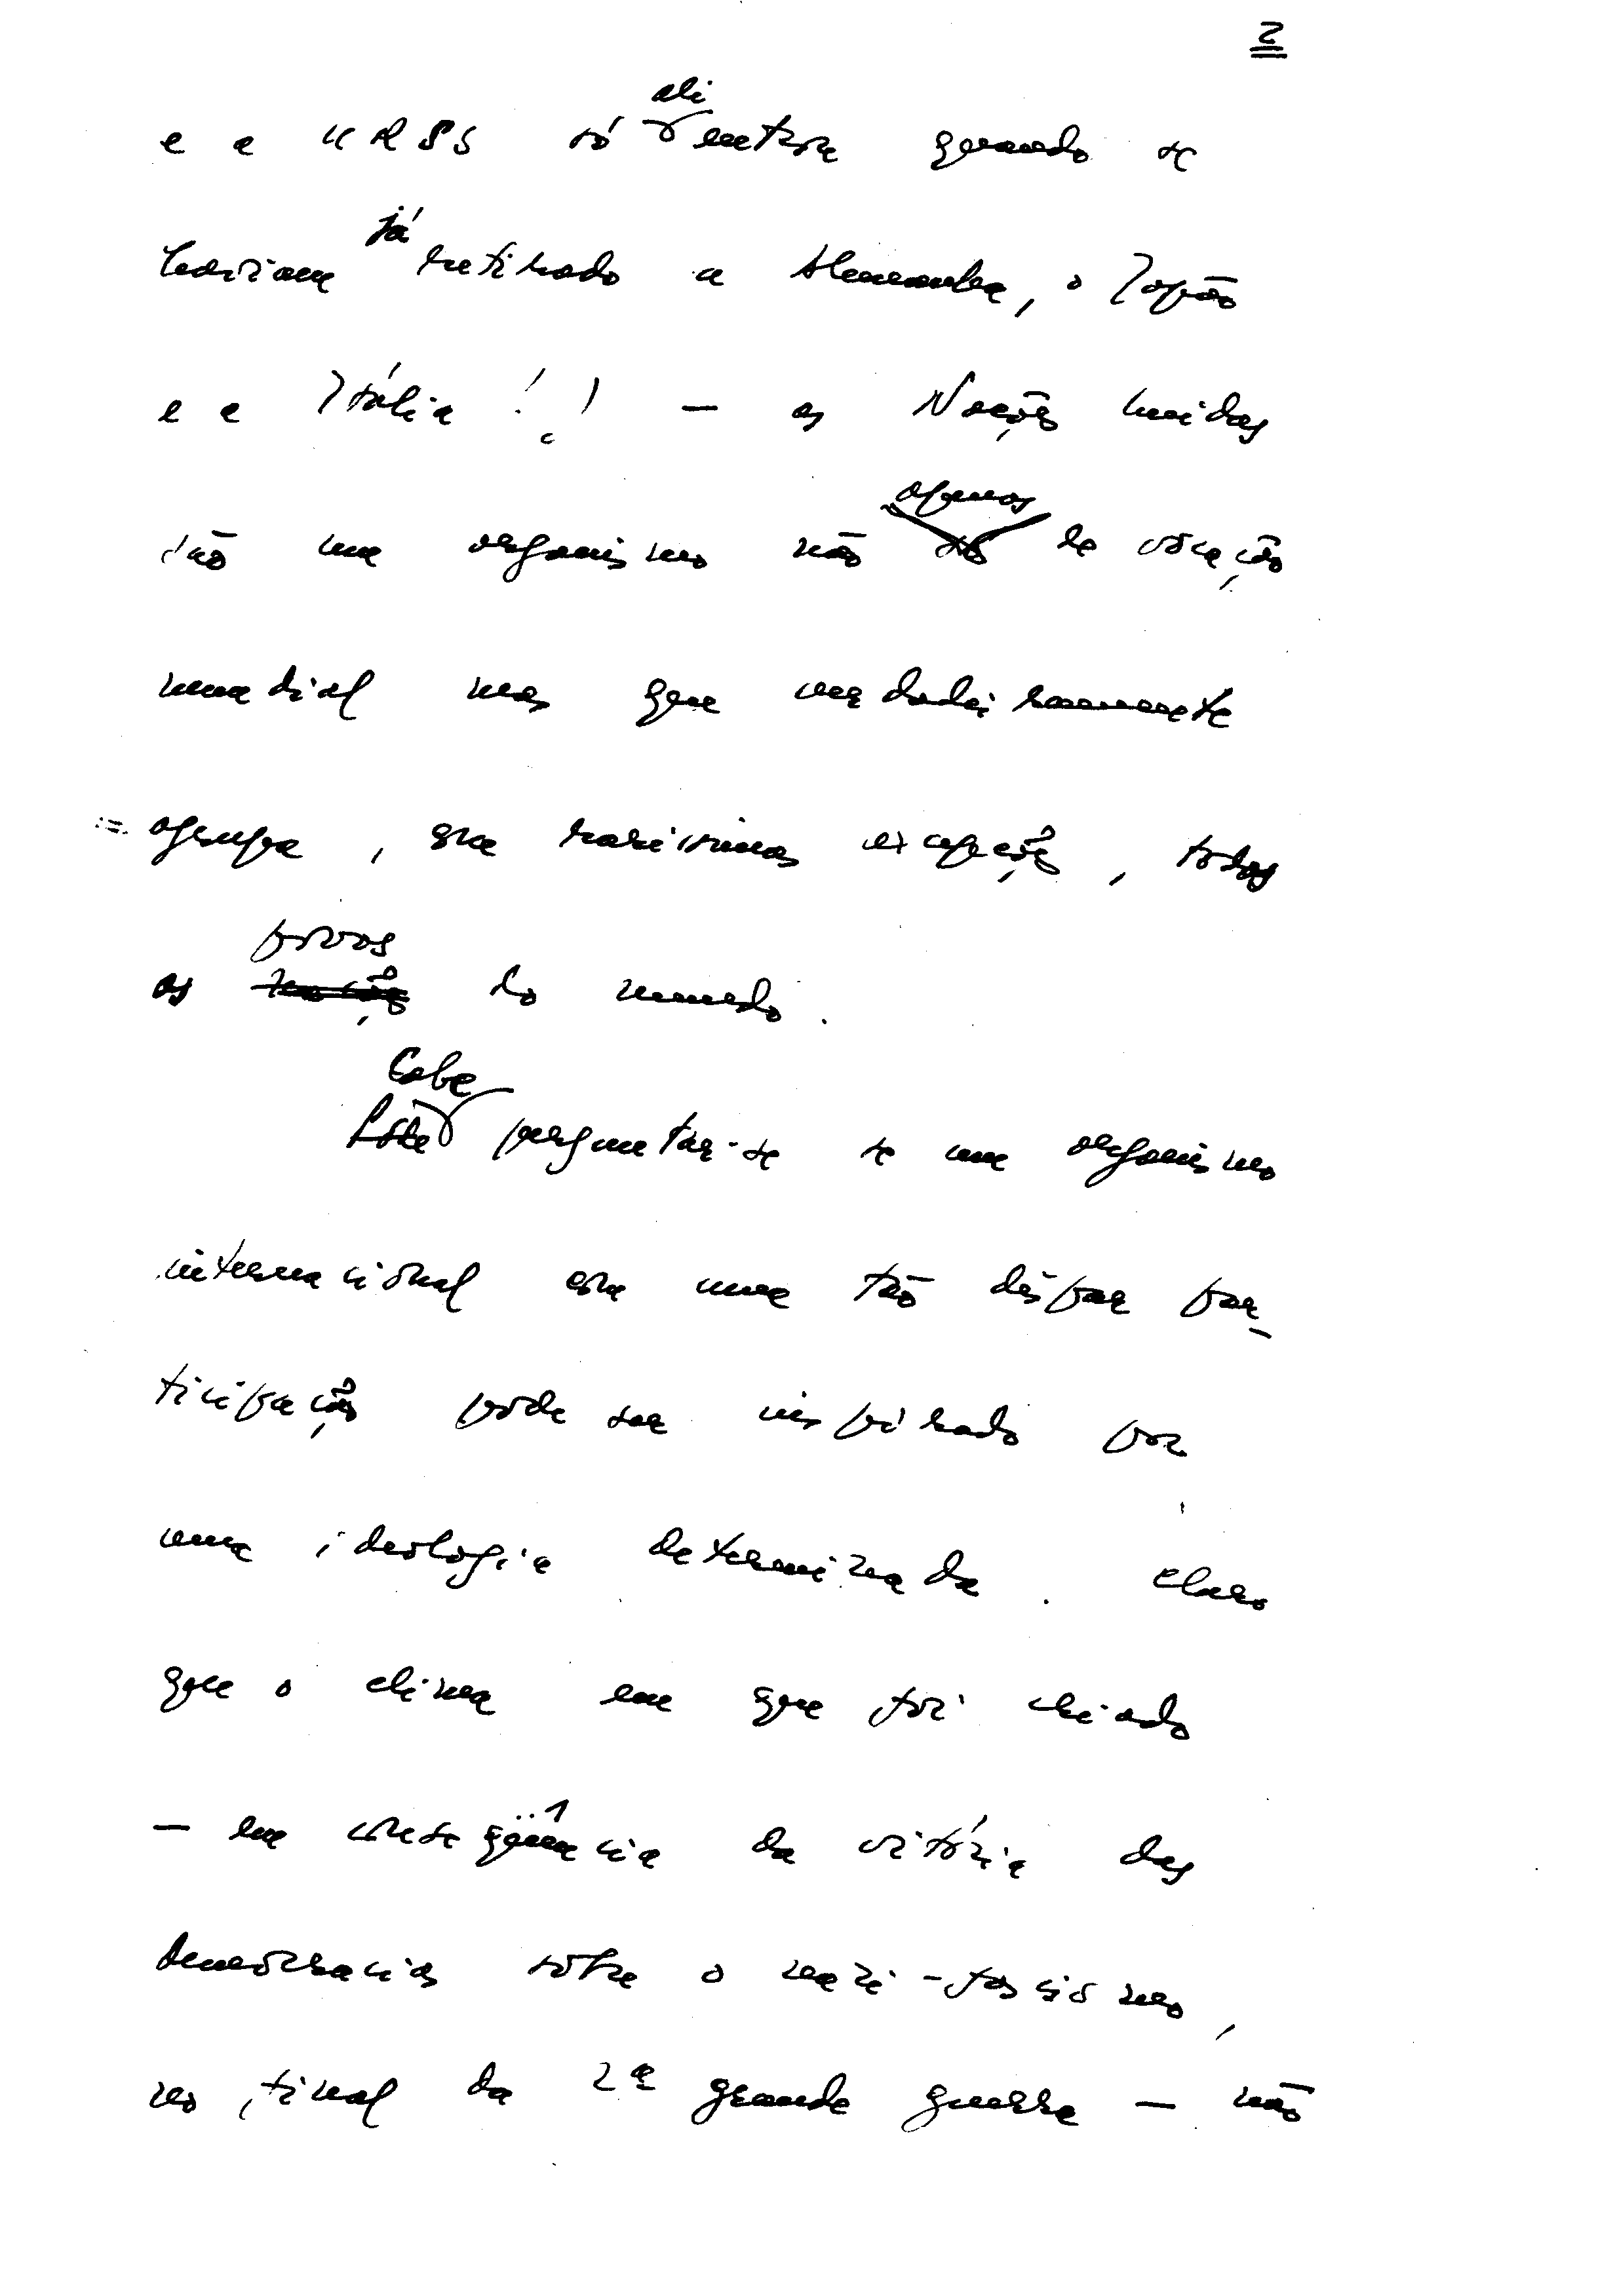 2
e a URSS só ali entra quando se
haviam já retirado a Alemanha, o Japão
e a Itália!!) — as Nações Unidas
são um organismo não apenas de vocação
mundial mas que verdadeiramente
agrupa, com raríssimas excepções, todos
os povos do mundo.
Cabe perguntar-se se um organismo
internacional com uma tão díspar par-
ticipação pode ser inspirado por
uma ideologia determinada. Claro
que o clima em que foi criado
— em conseqüência da vitória das
democracias sôbre o nazi-fascismo,
no final da 2ª grande guerra — não